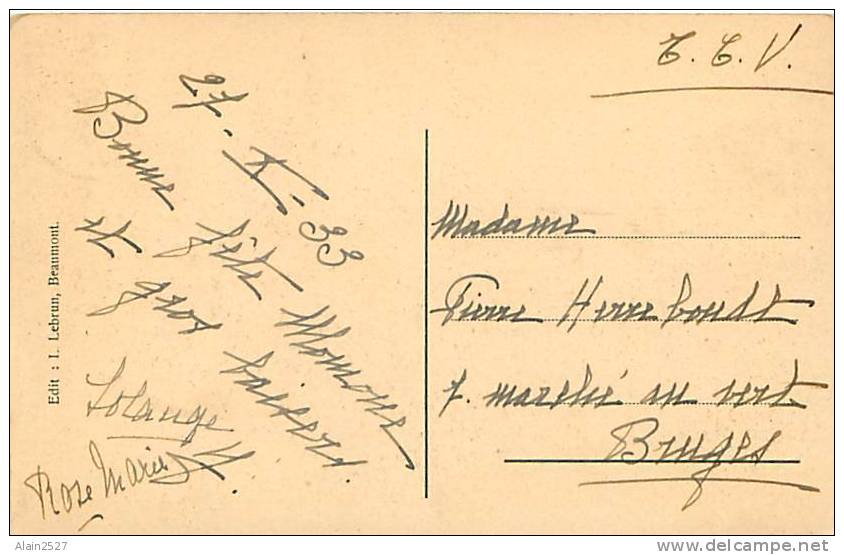 27-X-33
Bonne fête Momone
et gros baisers.
Solange
Rose Marie
T. T. V.
Madame
Pierre Herreboudt
7. marché au vert
Bruges
Edit : I. Lebrun, Beaumont.
Alain2527
www.delcampe.net